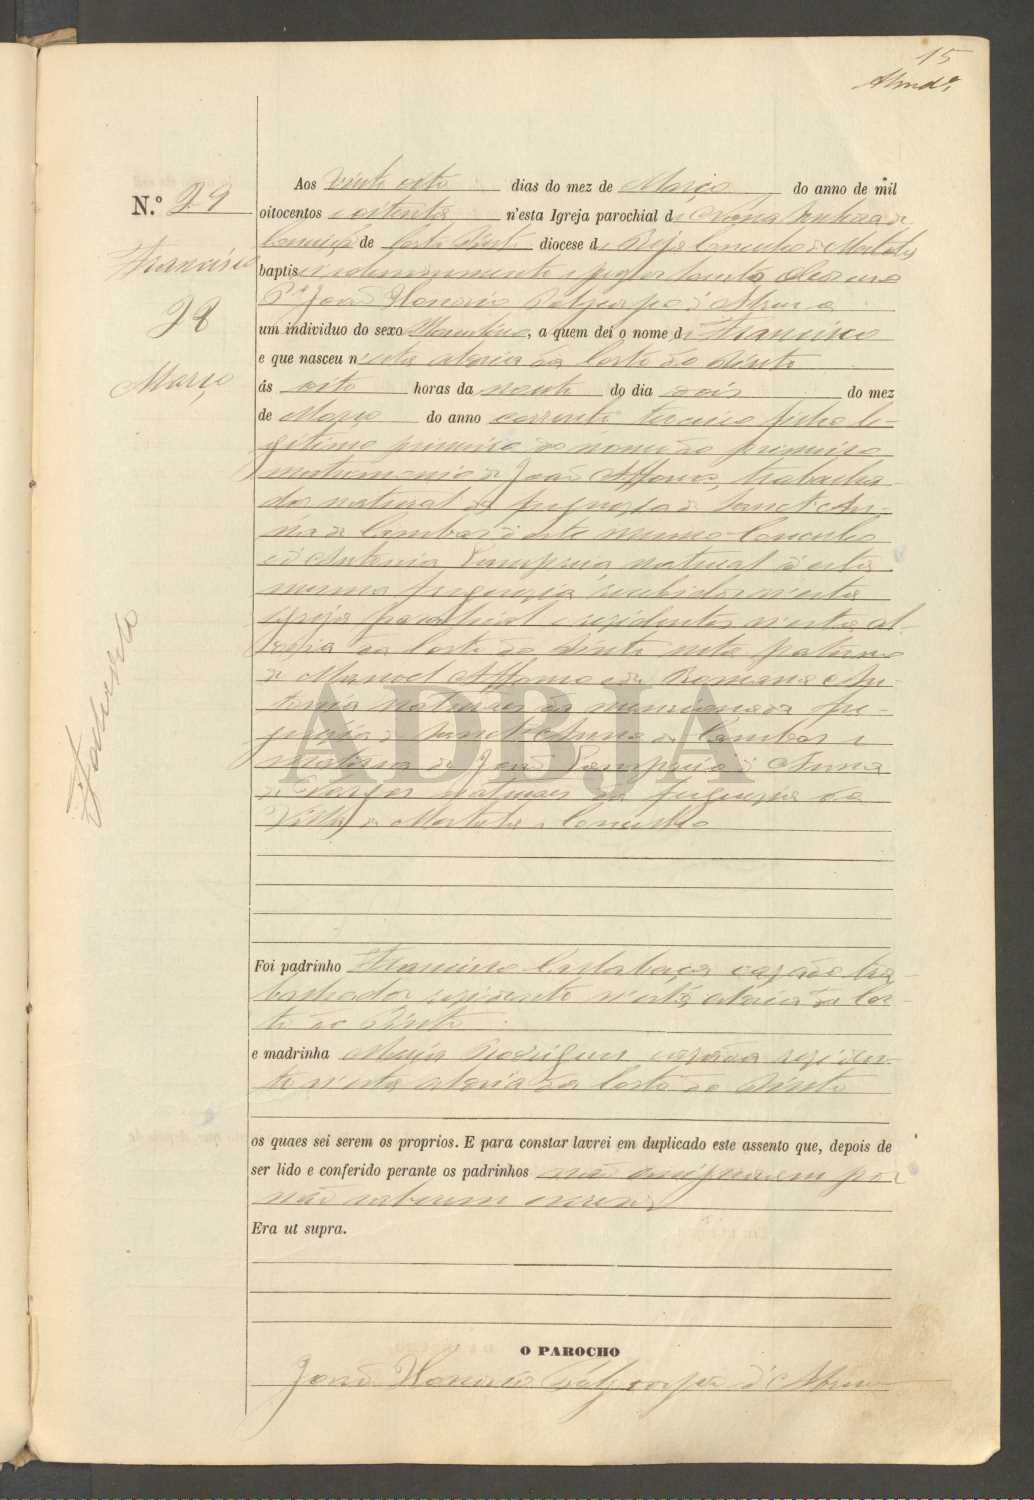 15
Almdª
N.º 29
Francisco
28
Março
Aos vinte oito dias do mez de Março do anno de mil
oitocentos oitenta n'esta Igreja parochial de Nossa Senhora da
Conceição de Corte do Pinto diocese de Beja Concelho de Mertola
baptisei solemnemente e puz os Santos Oleos eu o
P.e João Honorio d'Abreu
um individuo do sexo Masculino, a quem dei o nome de Francisco
e que nasceu n'esta aldeia da Corte do Pinto
ás oito horas da noute do dia dois do mez
de Março do anno corrente terceiro filho le-
gitimo primeiro do nome do primeiro
matrimonio de João Affonso, trabalha-
dor natural da freguezia de Sanct'An-
na de Cambas d'este mesmo Concelho
e d'Antonia natural d'esta
mesma freguezia, recebidos n'esta
igreja parochial e residentes n'esta al-
deia da Corte do Pinto neto paterno
de Manoel Affonso e de Romana An-
tonia naturaes da mencionada fre-
guezia de Sanct'Anna de Cambas e
materno de João e d'Anna
naturaes da freguezia da
Villa de Mertola Concelho
Foi padrinho Francisco cazado tra-
balhador residente n'esta aldeia da Cor-
te do Pinto
e madrinha Maria Rodrigues cazada residen-
te n'esta aldeia da Corte do Pinto
os quaes sei serem os proprios. E para constar lavrei em duplicado este assento que, depois de
ser lido e conferido perante os padrinhos não assignaram por
não saberem escrever
Era ut supra.
O PAROCHO
João Honorio d'Abreu
ADBJA